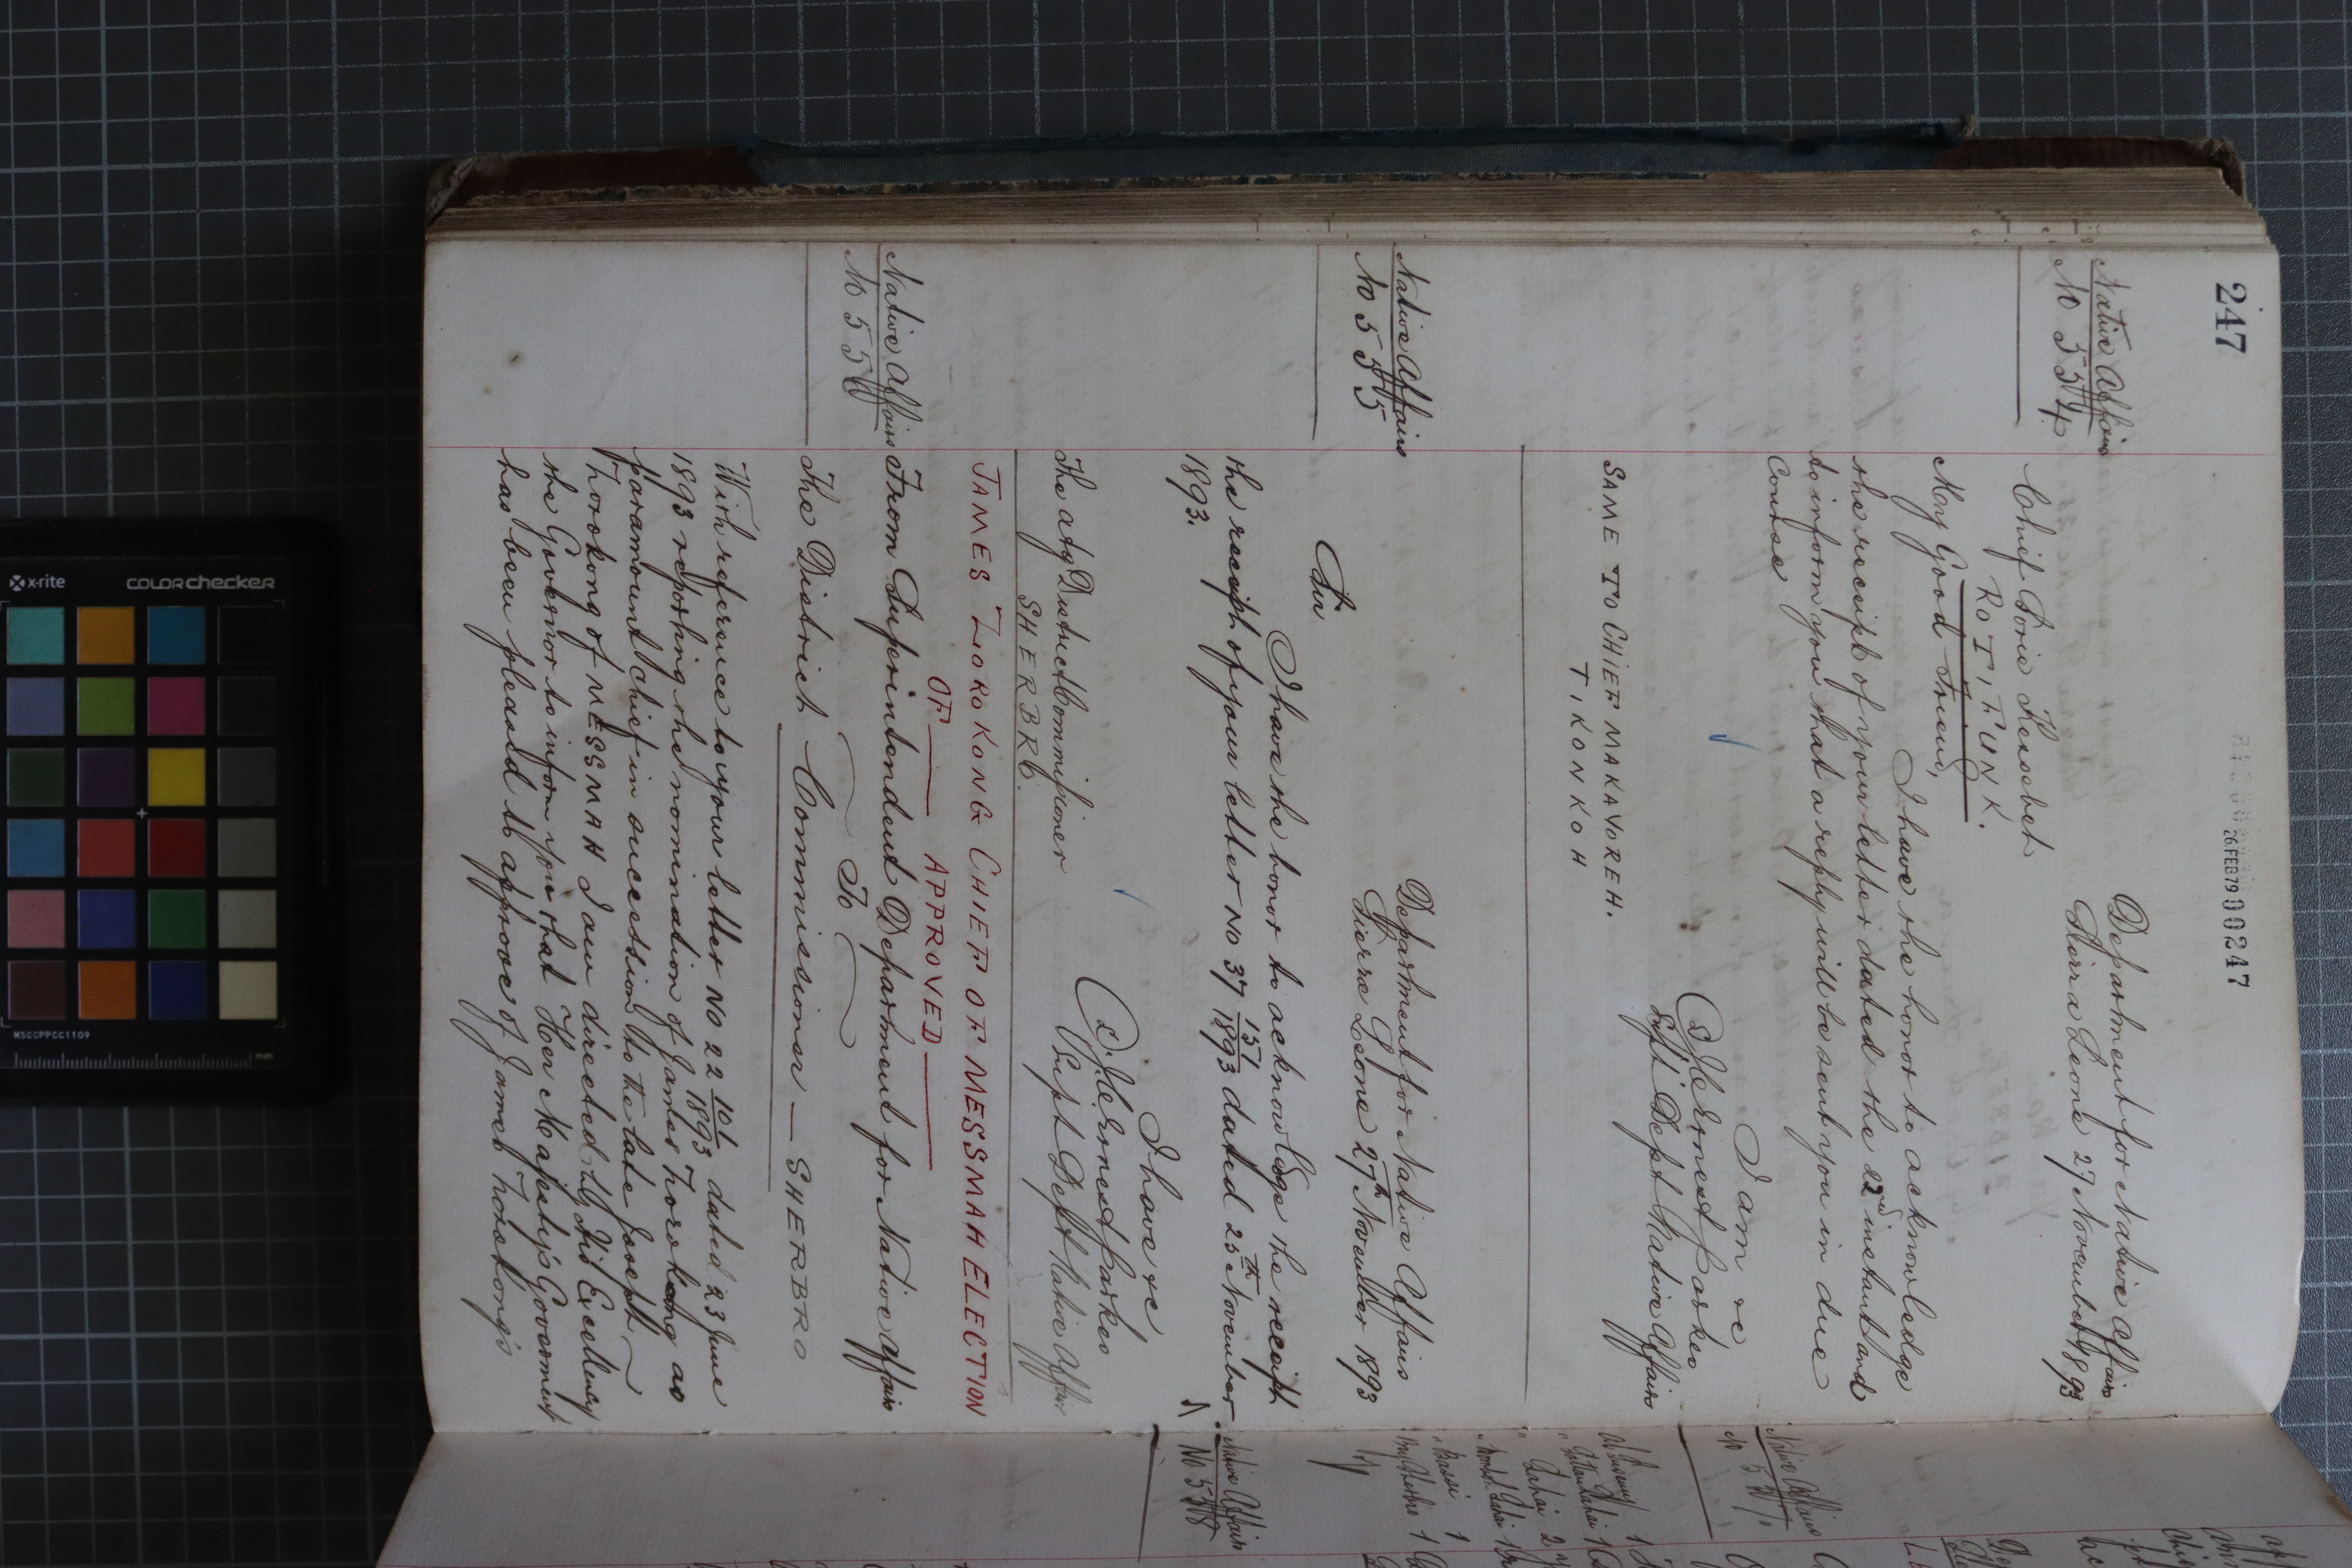 247
26 FEB 79 00247
Native Affairs
No 554
Department for Native Affairs
Sierra Leone 27 November 1893
Chief Borie
ROTIFUNK.
My Good Friend,
I have the honor to acknowledge
the receipt of your letter dated the 22nd instant and
to inform you that a reply will be sent you in due
Course
I am &c
J. C. Ernest Parkes
Supt Dept Native Affairs
SAME TO CHIEF MAKAVOREH.
TIKONKOH
Native Affairs
No 555
Department for Native Affairs
Sierra Leone 27th November 1893
Sir
I have the honor to acknowledge the receipt
the receipt of your letter No 37 151/1893 dated 25th November
1893.
I have &c
J. C. Ernest Parkes
Supt Dept Native Affairs
The actg District Commissioner
SHERBRO.
JAMES TOROKONG CHIEF OF MESSMAH ELECTION
OF — APPROVED —
Native Affairs
No 556
From Superintendent Department for Native Affairs
To
The District Commissioner — SHERBRO
With reference to your letter No 22 10/1893 dated 23 June
1893 reporting the nomination of James Torokong as
paramount chief in succession to the late Joseph
Torokong of MESSMAH I am directed by His Excellency
the Governor to inform you that Her Majesty's Government
has been pleased to approve of James Torokong's
Native Affairs
No 557
Native Affairs
No 558
x-rite
COLORchecker
MSCCPPCC1109
mm